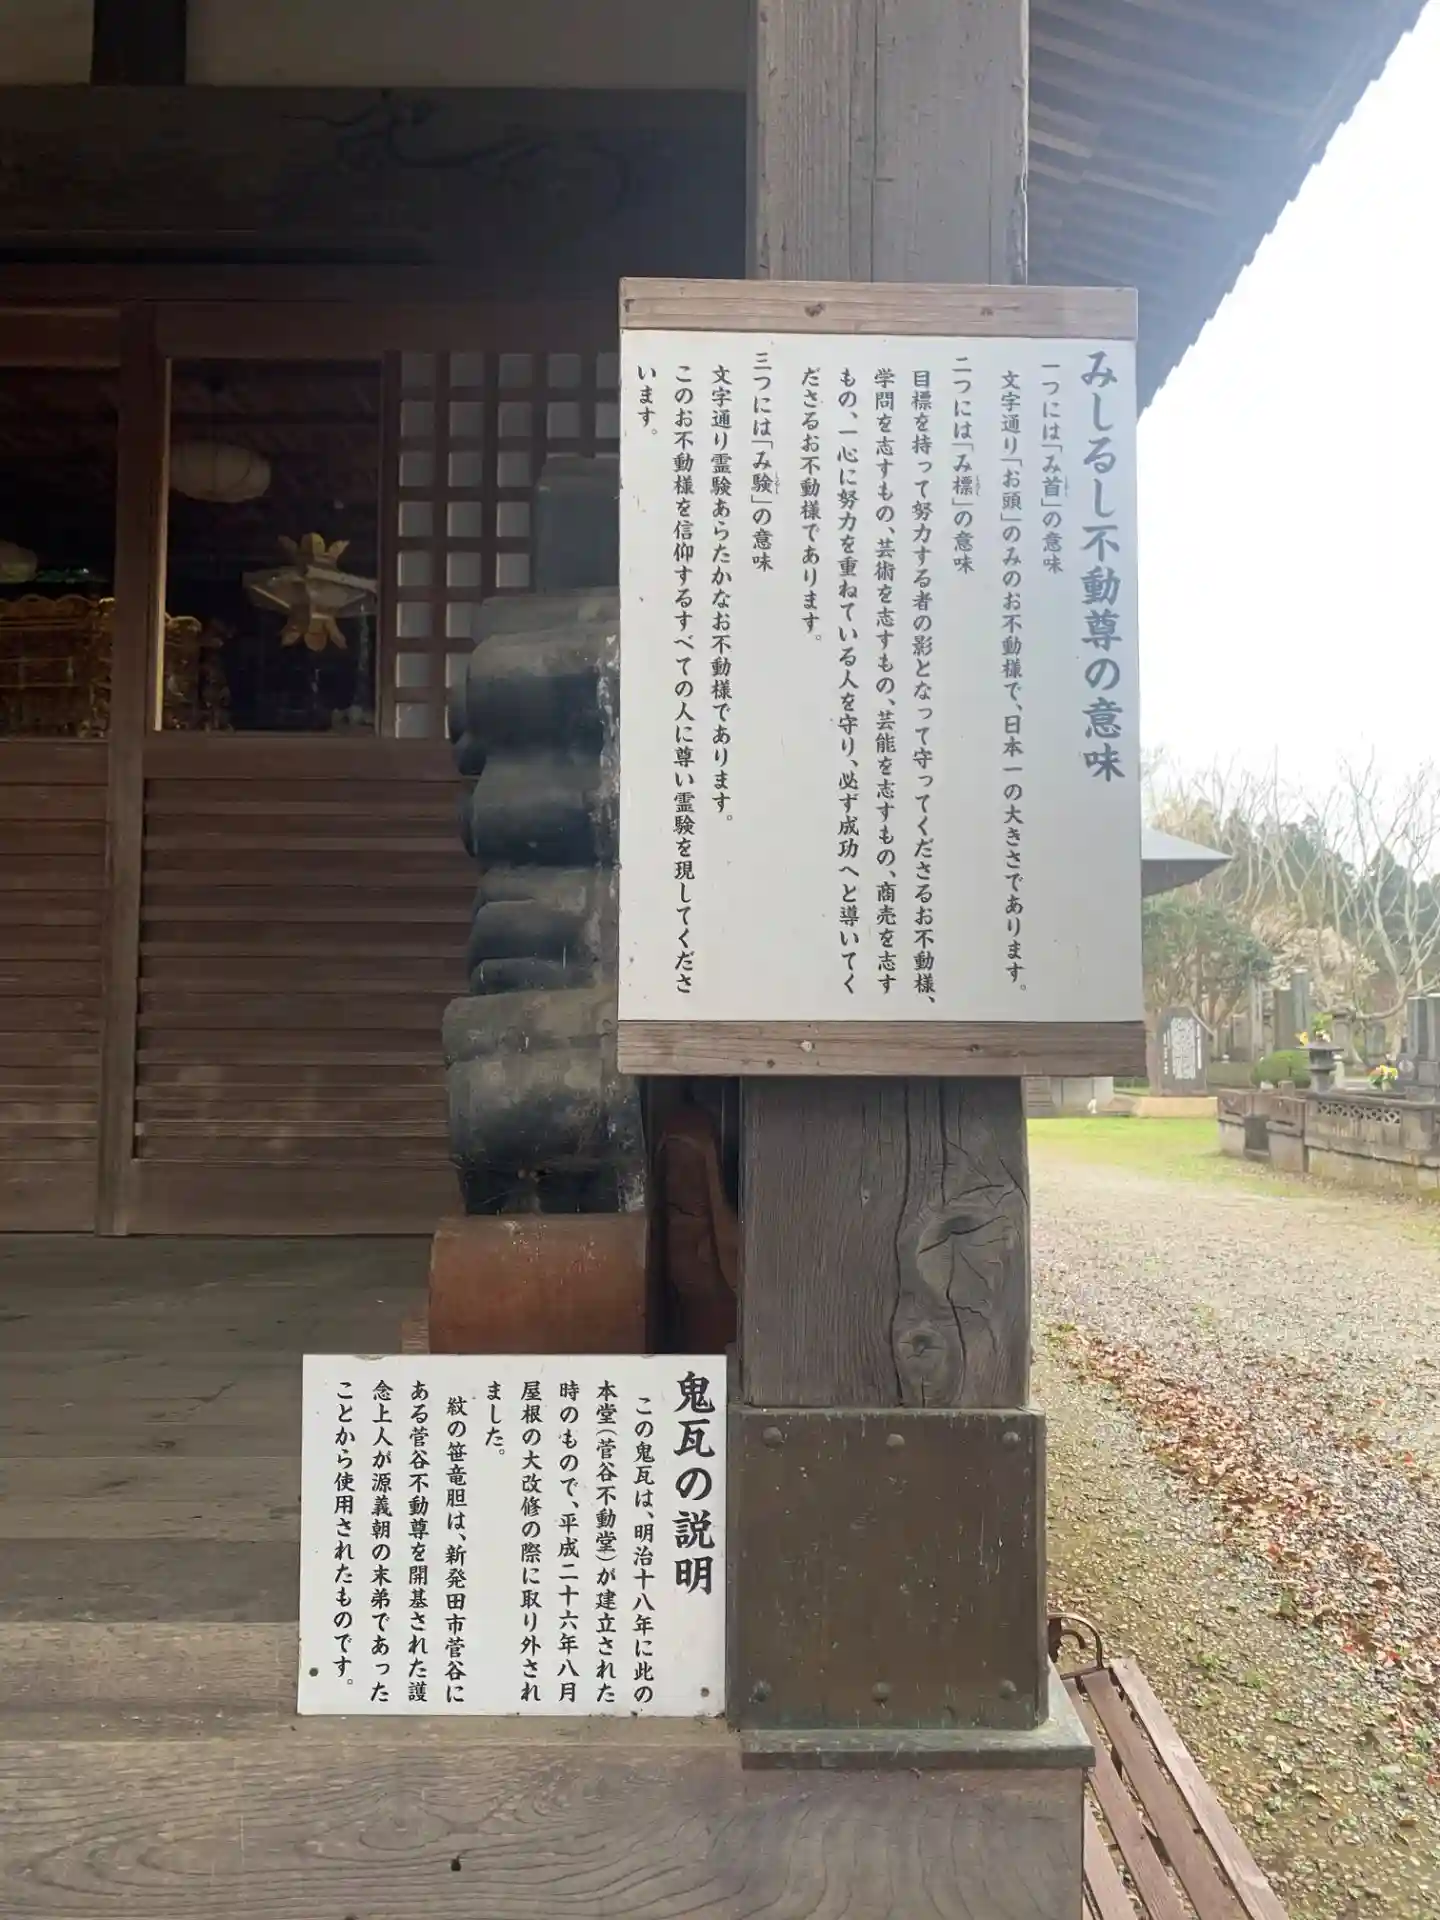 みしるし不動尊の意味
一つには「み首」の意味
文字通り「お頭」のみのお不動様で、日本一の大きさであります。
二つには「み標」の意味
目標を持って努力する者の影となって守ってくださるお不動様、
学問を志すもの、芸術を志すもの、芸能を志すもの、商売を志す
もの、一心に努力を重ねている人を守り、必ず成功へと導いてく
ださるお不動様であります。
三つには「み験」の意味
文字通り霊験あらたかなお不動様であります。
このお不動様を信仰するすべての人に尊い霊験を現してくださ
います。
鬼瓦の説明
この鬼瓦は、明治十八年に此の
本堂(菅谷不動堂)が建立された
時のもので、平成二十六年八月
屋根の大改修の際に取り外され
ました。
紋の笹竜胆は、新発田市菅谷に
ある菅谷不動尊を開基された護
念上人が源義朝の末弟であった
ことから使用されたものです。